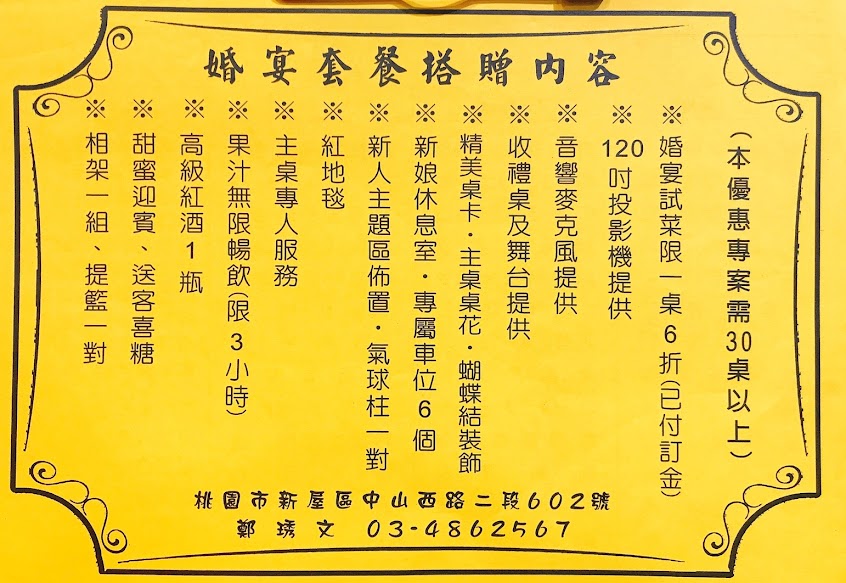 婚宴套餐搭贈內容
(本優惠專案需30桌以上)
※婚宴試菜限一桌6折(已付訂金)
※120吋投影機提供
※音響麥克風提供
※收禮桌及舞台提供
※精美桌卡・主桌桌花・蝴蝶結裝飾
※新娘休息室・專屬車位6個
※新人主題區佈置・氣球柱一對
※紅地毯
※主桌專人服務
※果汁無限暢飲(限3小時)
※高級紅酒1瓶
※甜蜜迎賓、送客喜糖
※相架一組、提籃一對
桃園市新屋區中山西路二段602號
鄭琇文 03-4862567